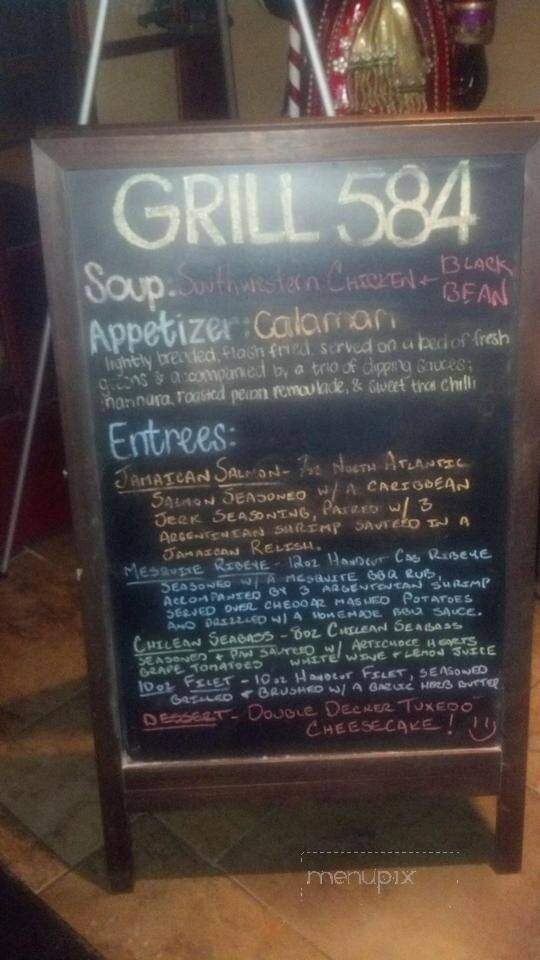 GRILL 584
Soup: Southwestern Chicken + BLACK BEAN
Appetizer: Calamari
lightly breaded, flash fried. served on a bed of fresh
greens & accompanied by a trio of dipping sauces;
marinara, roasted pecan remoulade, & sweet thai chilli
Entrees:
JAMAICAN SALMON - 7oz NORTH ATLANTIC
SALMON SEASONED W/ A CARIBBEAN
JERK SEASONING, PAIRED W/ 3
ARGENTINIAN SHRIMP SAUTEED IN A
JAMAICAN RELISH.
MESQUITE RIBEYE - 12oz HANDCUT CAB RIBEYE
SEASONED W/ A MESQUITE BBQ RUB,
ACCOMPANIED BY 3 ARGENTENIAN SHRIMP
SERVED OVER CHEDDAR MASHED POTATOES
AND DRIZZLED W/ A HOMEMADE BBQ SAUCE.
CHILEAN SEABASS - 8oz CHILEAN SEABASS
SEASONED & PAN SAUTEED W/ ARTICHOKE HEARTS
GRAPE TOMATOES WHITE WINE & LEMON JUICE
10oz FILET - 10oz HANDCUT FILET, SEASONED
GRILLED & BRUSHED W/ A GARLIC HERB BUTTER
DESSERT - DOUBLE DECKER TUXEDO
CHEESECAKE!
menupix